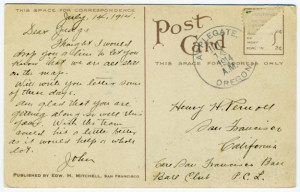 THIS SPACE FOR CORRESPONDENCE
July 14, 1914.
Dear Judge
Thought I would
drop you a line to let you
know that we are all still
on the map.
Will write you a letter some
of these days.
Am glad that you are
getting along so well this
year. With the team
around his a little better,
as it would help a whole
lot.
John
PUBLISHED BY EDW. H. MITCHELL, SAN FRANCISCO
Post
Card
THIS SPACE FOR ADDRESS ONLY
APPLEGATE
1914
A.M.
OREGON
Henry W. Berroll
San Francisco
California
Care San Francisco Base
Ball Club P.C.L.